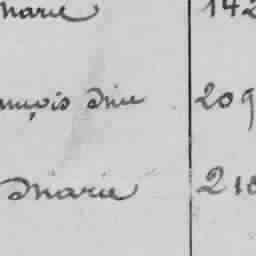 Marie 142
ançois 209
Marie 210